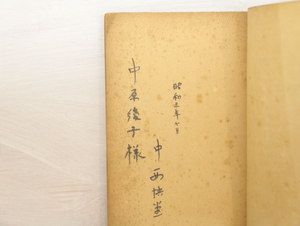 昭和年七月
中西悟堂
中原綾子様